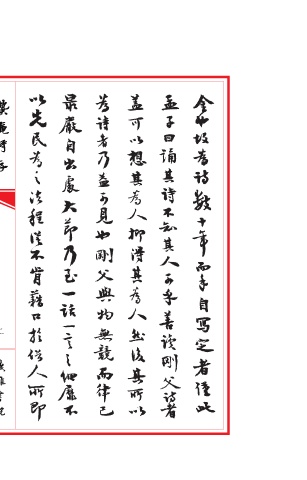 為詩數十年而手自寫定者僅此
孟子曰誦其詩不知其人可乎善讀剛父詩者
蓋可以想其為人抑得其為人然後其所以
為詩者乃益可見也剛父與物無競而律己
最嚴自出處大節乃至一話一言之細靡不
以先民為之法程從不肯藉口於俗人所即